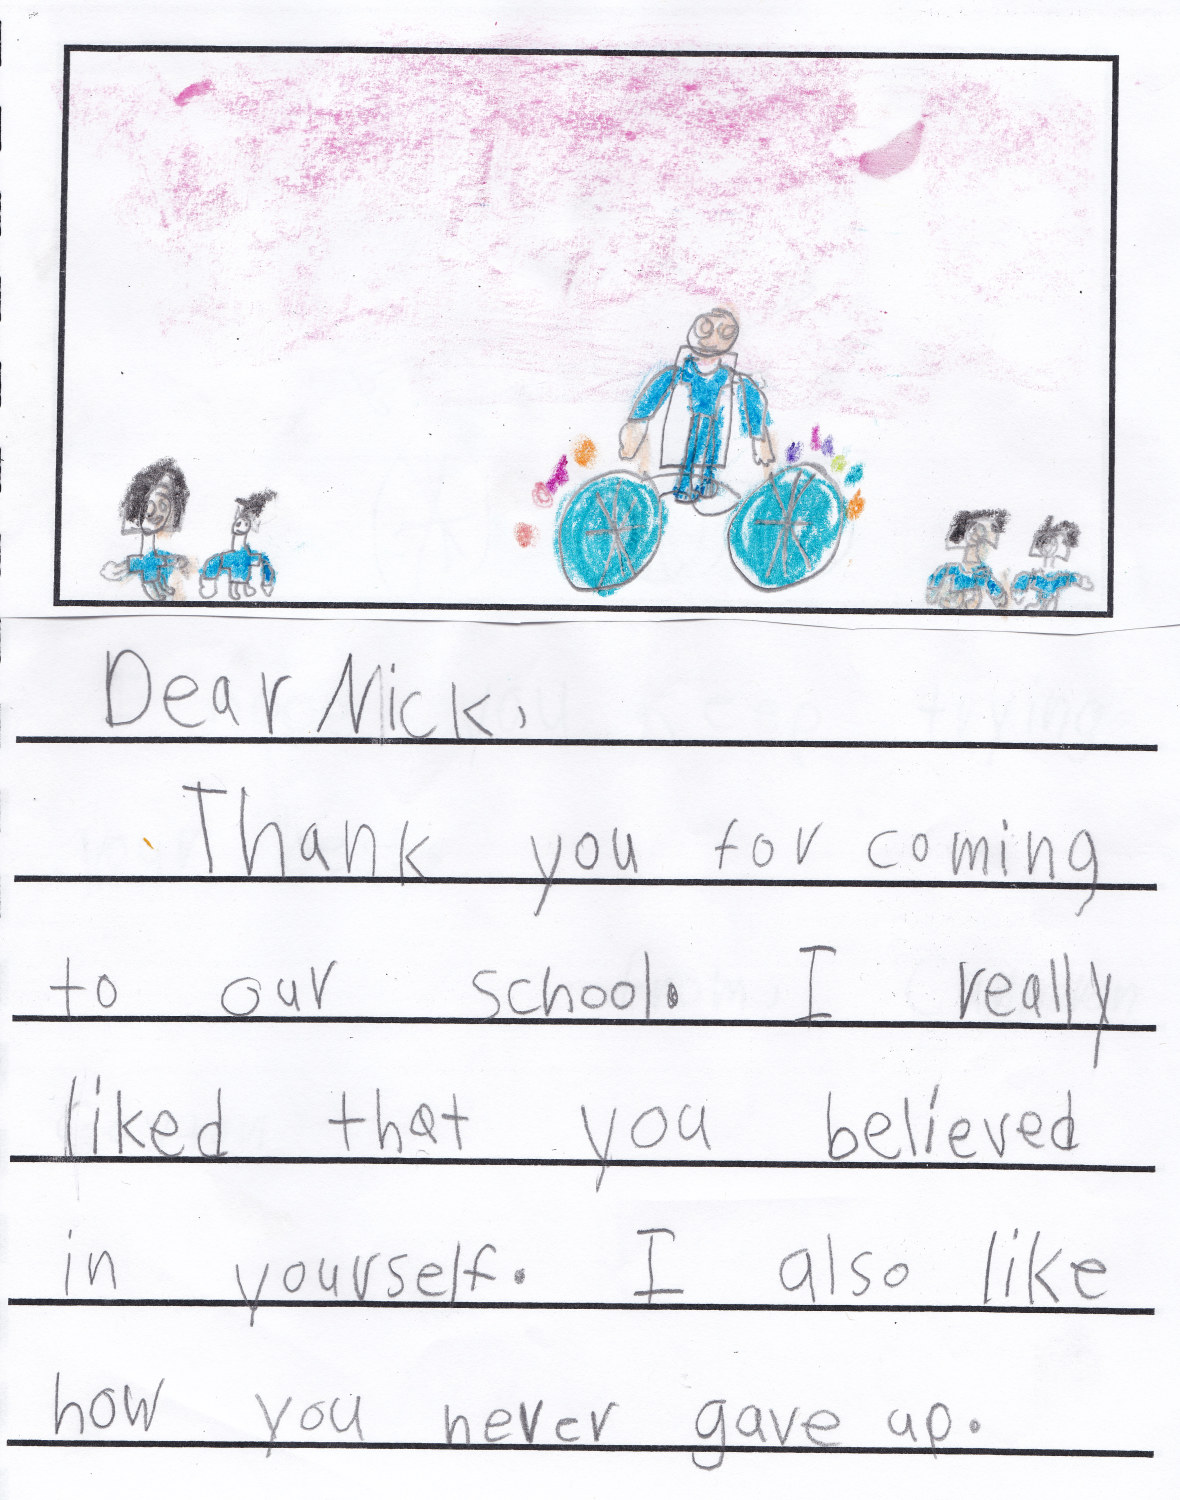 Dear Nick,
Thank you for coming
to our school. I really
liked that you believed
in yourself. I also like
how you never gave up.